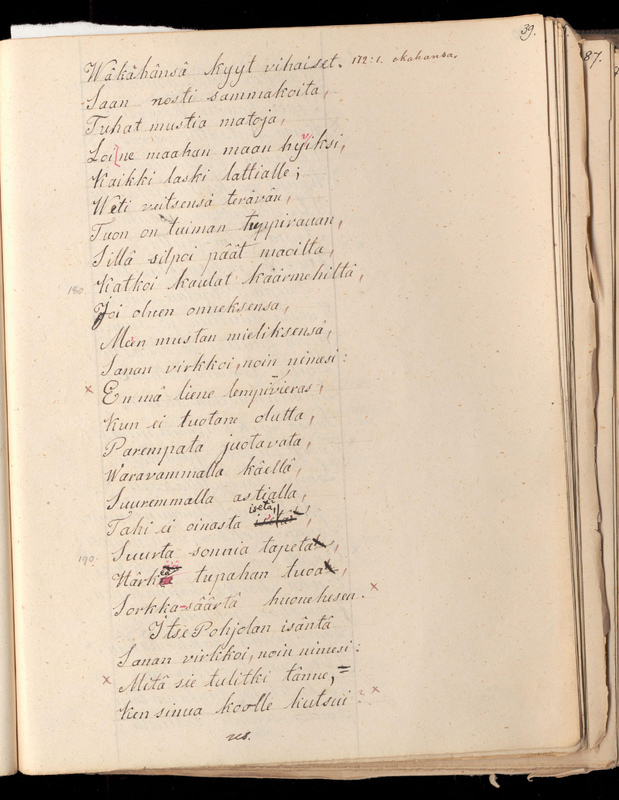 39.
87.
Wäkähänsä kyyt vihaiset. 172:1. okahansa.
Saan nosti sammakoita,
Tuhat mustia matoja,
Loi ne maahan maan hyviksi,
Kaikki laski lattialle;
Weti veitsensä terävän,
Tuon on tuiman tuppirauan,
Sillä silpoi päät maoilta,
180 Katkoi kaulat käärmehiltä,
Joi oluen onneksensa,
Meen mustan mieliksensä,
Sanan virkkoi, noin nimesi:
x En mä liene lempivieras,
Kun ei tuotane olutta,
Parempata juotavata,
Waravammalla käellä,
Suuremmalla astialla,
Tahi ei oinasta isetä,
190. Suurta sonnia tapeta,
Härkeä tupahan tuoa,
Sorkka-säärtä huonehesen. x
Itse Pohjolan isäntä
Sanan virkkoi, noin nimesi:
x Mitä sie tulitki tänne, =
Ken sinua koolle kutsui? x